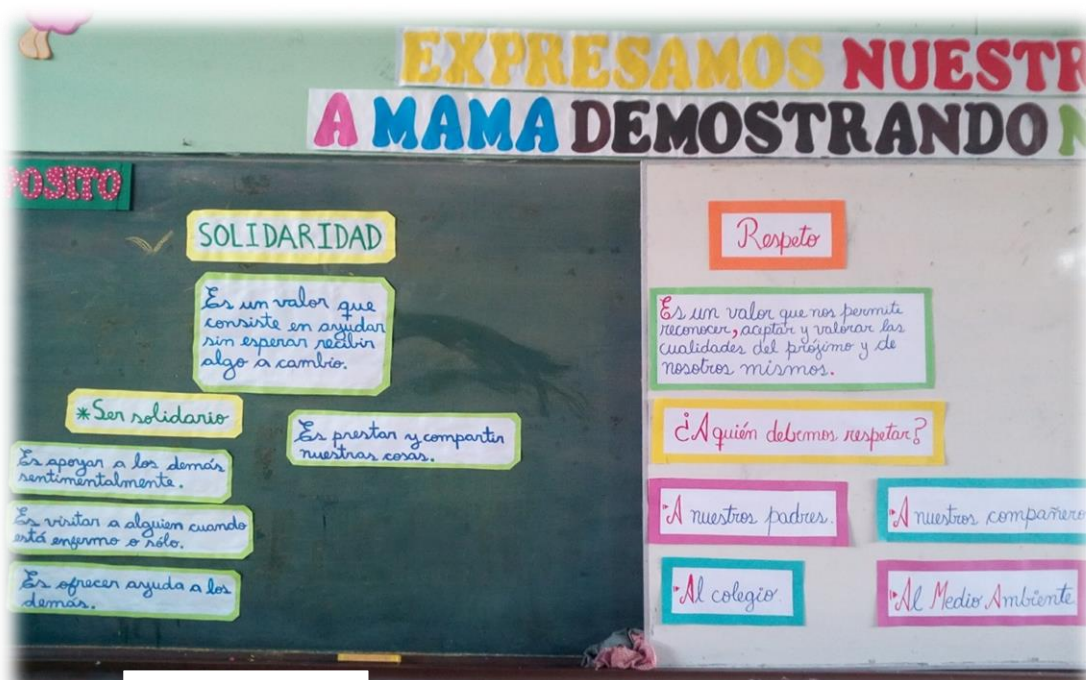 EXPRESAMOS NUESTR
A MAMA DEMOSTRANDO N
POSITO
SOLIDARIDAD
Es un valor que
consiste en ayudar
sin esperar recibir
algo a cambio.
* Ser solidario
Es apoyar a los demás
sentimentalmente.
Es visitar a alguien cuando
está enfermo o sólo.
Es ofrecer ayuda a los
demás.
Es prestar y compartir
nuestras cosas.
Respeto
Es un valor que nos permite
reconocer, aceptar y valorar las
cualidades del prójimo y de
nosotros mismos.
¿A quién debemos respetar?
A nuestros padres.
A nuestros compañero
Al colegio.
Al Medio Ambiente